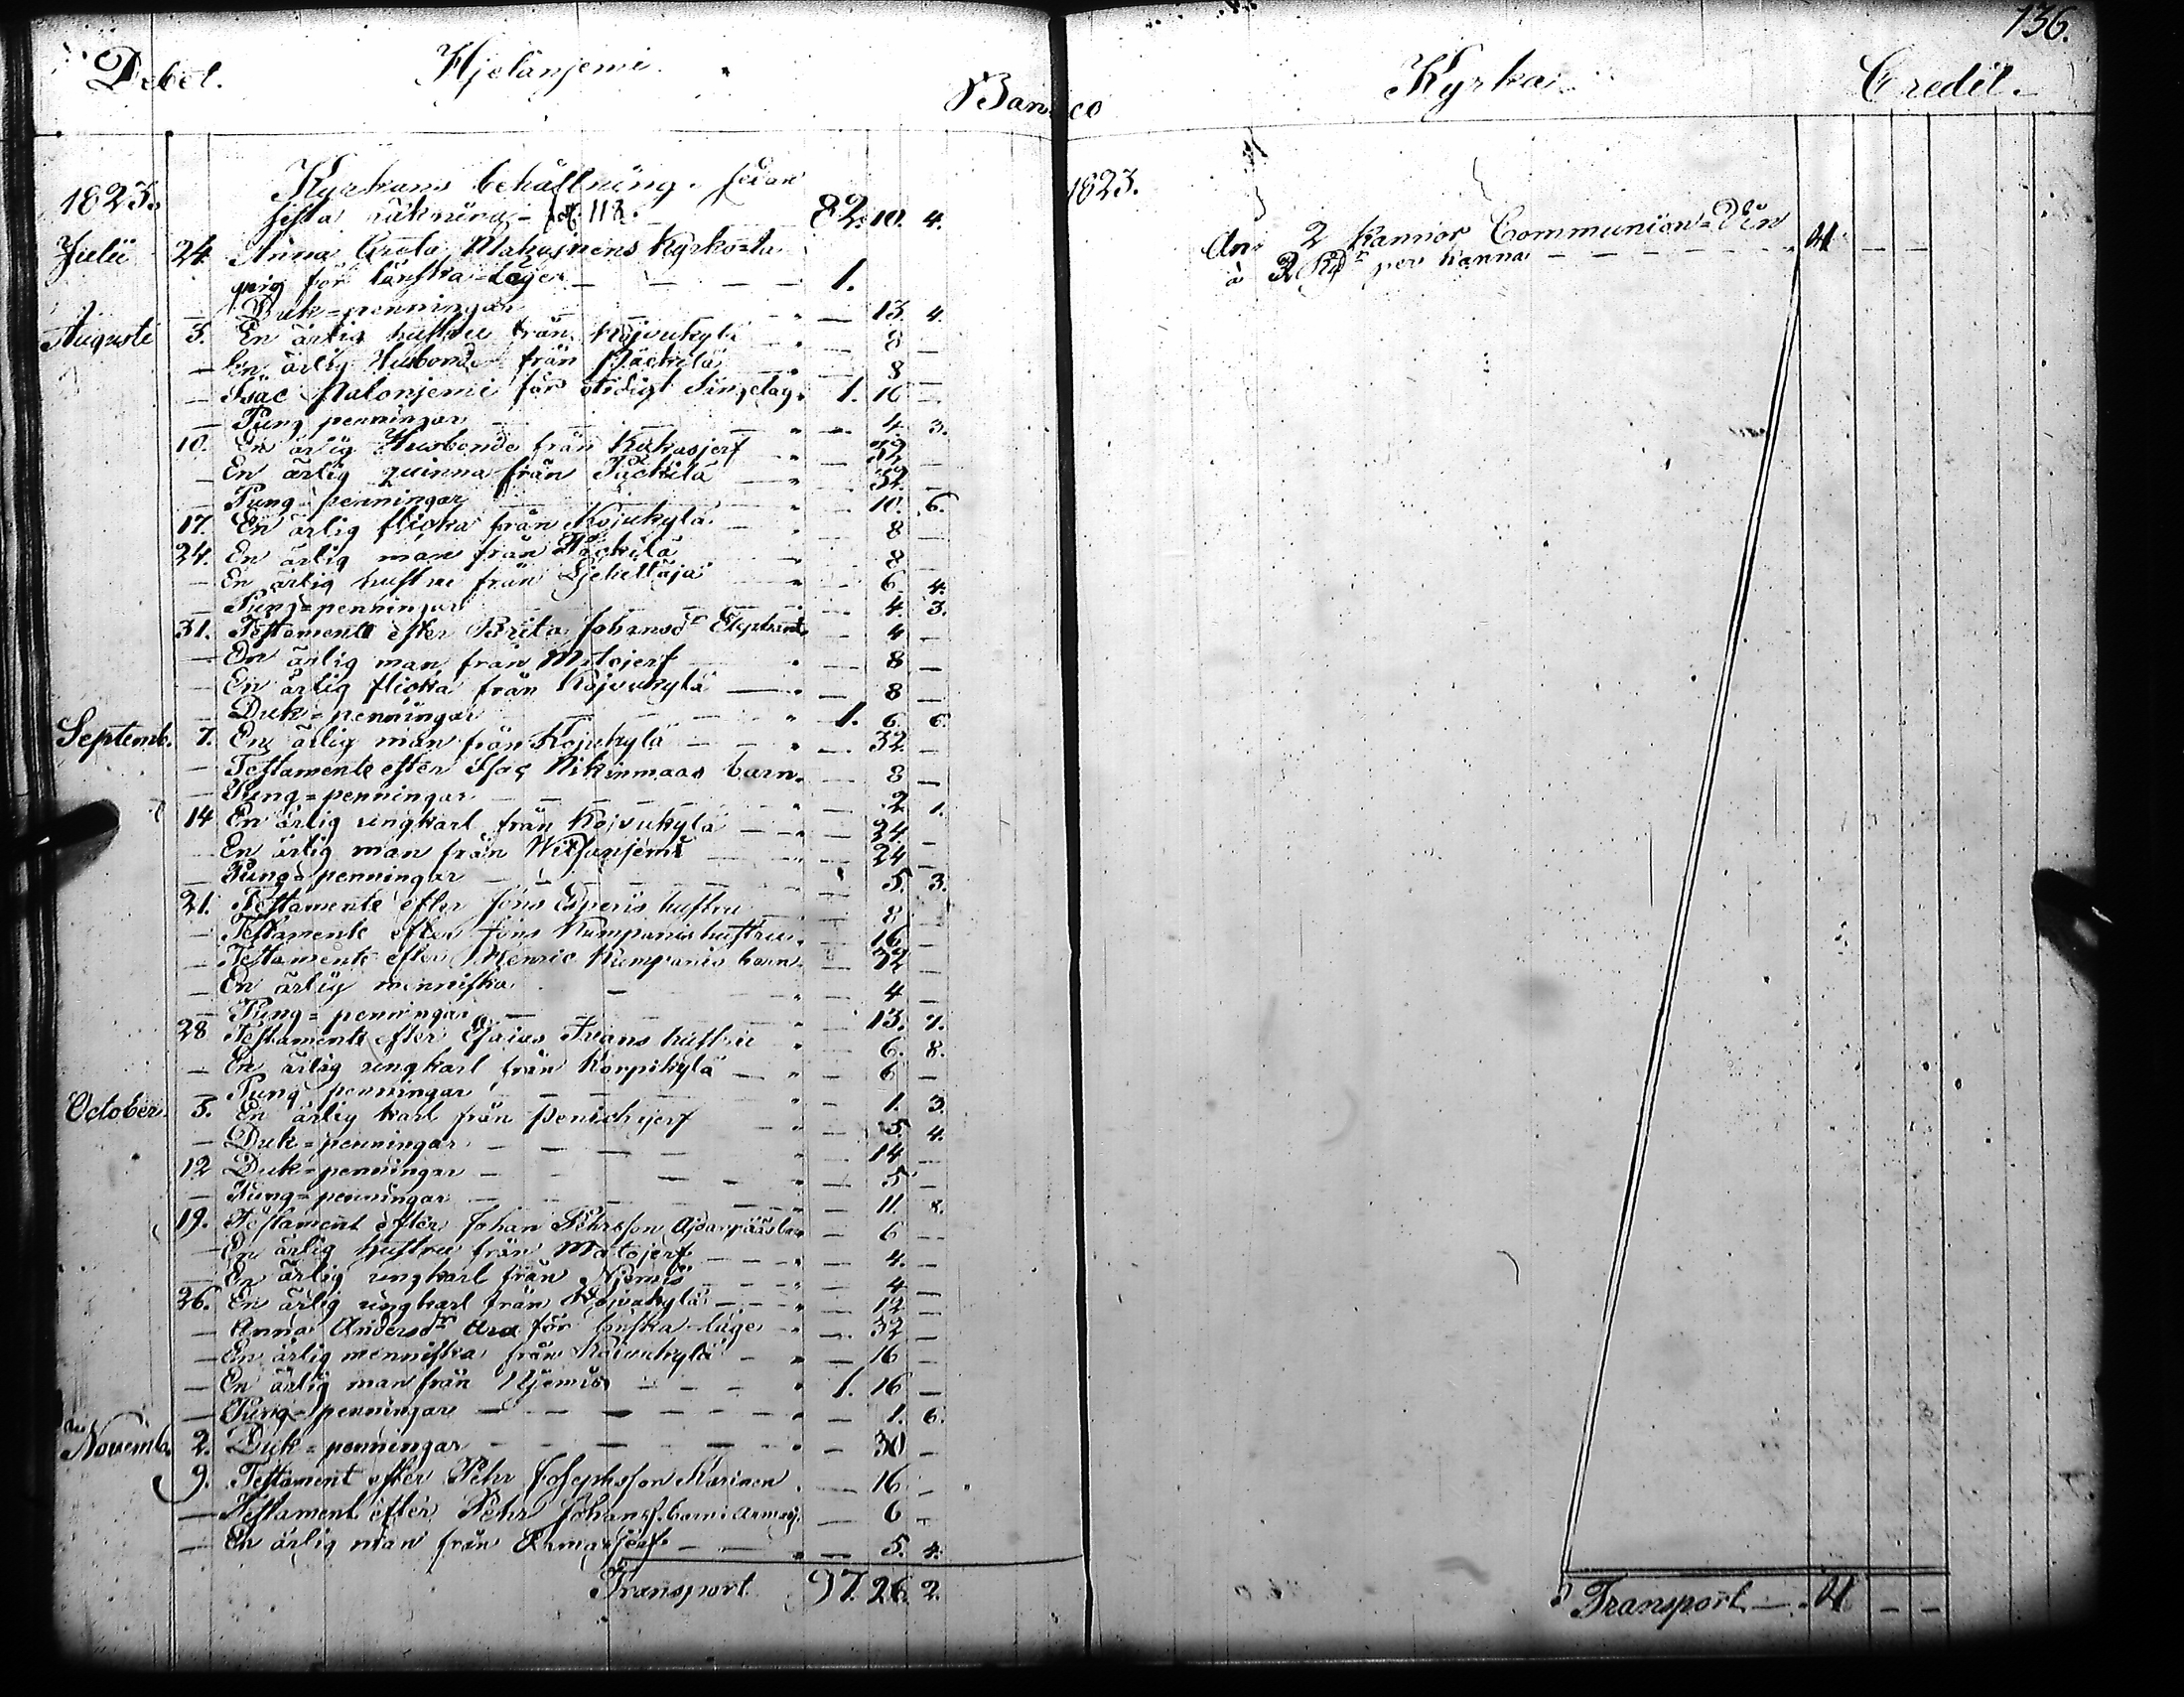 136.
Debet. Hjetänjemi Banco Kyrka. Credit.
1823. Kyrkans behållning sedan
sista räkning fol. 118. 82. 10. 4.
Julii 24. Anna Greta
för länska-läger 1.
Duk-penningar 13 4.
Augusti 3. En ärlig hustru från Kojvukylä 8
En ärlig Husbonde från Päckilä 8
Isac Palonjemi för otidigt Sänge­lag. 1. 16
Pung penningar 4 3.
10. En ärlig Husbonde från Kukasjerf 32
En ärlig quinna från Päckilä 32
Pung-penningar 10. 6.
17. En ärlig flicka från Kojukylä 8
24. En ärlig man från Päckilä 8
En ärlig hustru från 6 4.
Pung-penningar 4. 3.
31. Testamente efter Brita Johansdr 4
En ärlig man från Matojerf 8
En ärlig flicka från Kojvukylä 8
Duk-penningar 1. 6. 6.
Septemb. 7. En ärlig man från Kojukylä 32
Testamente efter Isac Nikinmaas barn. 8
Pung=penningar 2. 1.
14 En ärlig ungkarl från Kojvukylä 24
En ärlig man från Witsanjemi 24
Pung-penningar 5. 3.
21. Testamente efter Jöns Esperis hustru 8
Testamente efter Jöns Kumpanis hustru. 16
Testamente efter Henric Kumpanis barn 32
En ärlig menniska 4
Pung=penningar 13. 7.
28 Testamente efter Esaias Frans hustru 6. 8.
En ärlig ungkarl från Korpikylä 6
Pung penningar 1. 3.
October. 3. En ärlig karl från 5 4.
Duk=penningar 14
12 Duk-penningar 5
Pung-penningar 11. 8.
19. Testament efter Johan Pehrsson 6
En ärlig hustru från Matojerf 4.
En ärlig ungkarl från Njemis 4
26. En ärlig ungkarl från Kojvukylä 12
Anna Andersdr för länska-läger 32
En ärlig menniska från Koivukylä 16
En ärlig man från Njemis 1. 16
Pung-penningar 1. 6.
Novemb. 2. Duk=penningar 30
9. Testament efter Pehr Josephsson Karinen 16
Testament efter Pehr Johans. barn 6
En ärlig man från Armasjerf. 5. 4.
Transport 97. 26. 2.
1823.
2 Kannor Communion=Vin
à 2 Rdr per kanna 4
Transport 4